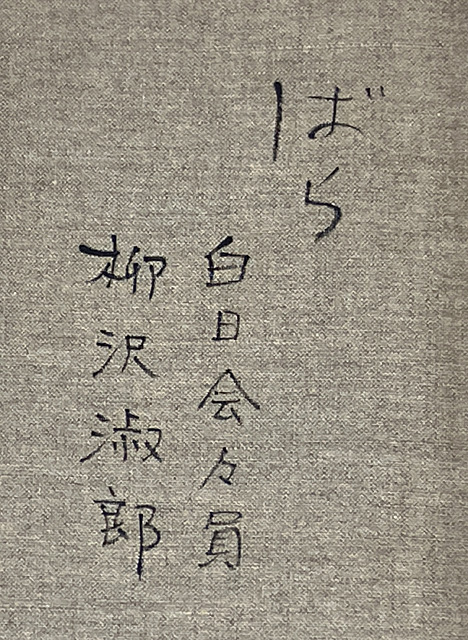 ばら
白日会々員
柳沢淑郎